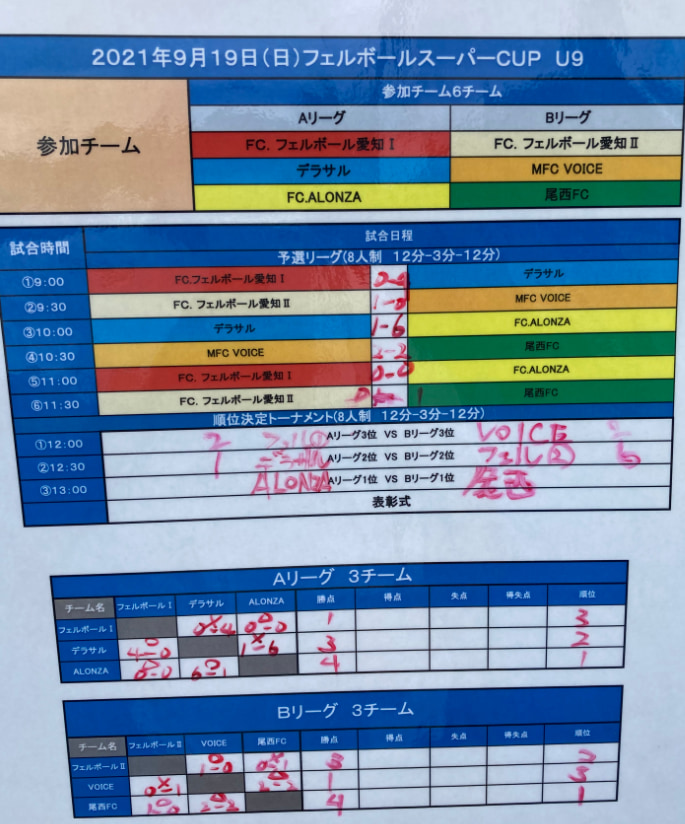 2021年9月19日(日)フェルボールスーパーCUP U9
参加チーム
参加チーム6チーム
Aリーグ Bリーグ
FC. フェルボール愛知Ⅰ FC. フェルボール愛知Ⅱ
デラサル MFC VOICE
FC.ALONZA 尾西FC
試合時間 試合日程
予選リーグ(8人制 12分-3分-12分)
①9:00 FC.フェルボール愛知Ⅰ デラサル
②9:30 FC. フェルボール愛知Ⅱ 1-0 MFC VOICE
③10:00 デラサル 1-6 FC.ALONZA
④10:30 MFC VOICE 2-2 尾西FC
⑤11:00 FC. フェルボール愛知Ⅰ 0-0 FC.ALONZA
⑥11:30 FC. フェルボール愛知Ⅱ 0-1 尾西FC
順位決定トーナメント(8人制 12分-3分-12分)
①12:00 2 Aリーグ3位 VS Bリーグ3位 VOICE
②12:30 1 デラサル Aリーグ2位 VS Bリーグ2位 フェル②
③13:00 ALONZA Aリーグ1位 VS Bリーグ1位 尾西
表彰式
Aリーグ 3チーム
チーム名 フェルボールⅠ デラサル ALONZA 勝点 得点 失点 得失点 順位
フェルボールⅠ 0×4 0△0 1 3
デラサル 4○0 1×6 3 2
ALONZA 0△0 6○1 4 1
Bリーグ 3チーム
チーム名 フェルボールⅡ VOICE 尾西FC 勝点 得点 失点 得失点 順位
フェルボールⅡ 1○0 0×1 3 2
VOICE 0×1 2△2 1 3
尾西FC 1○0 2△2 4 1